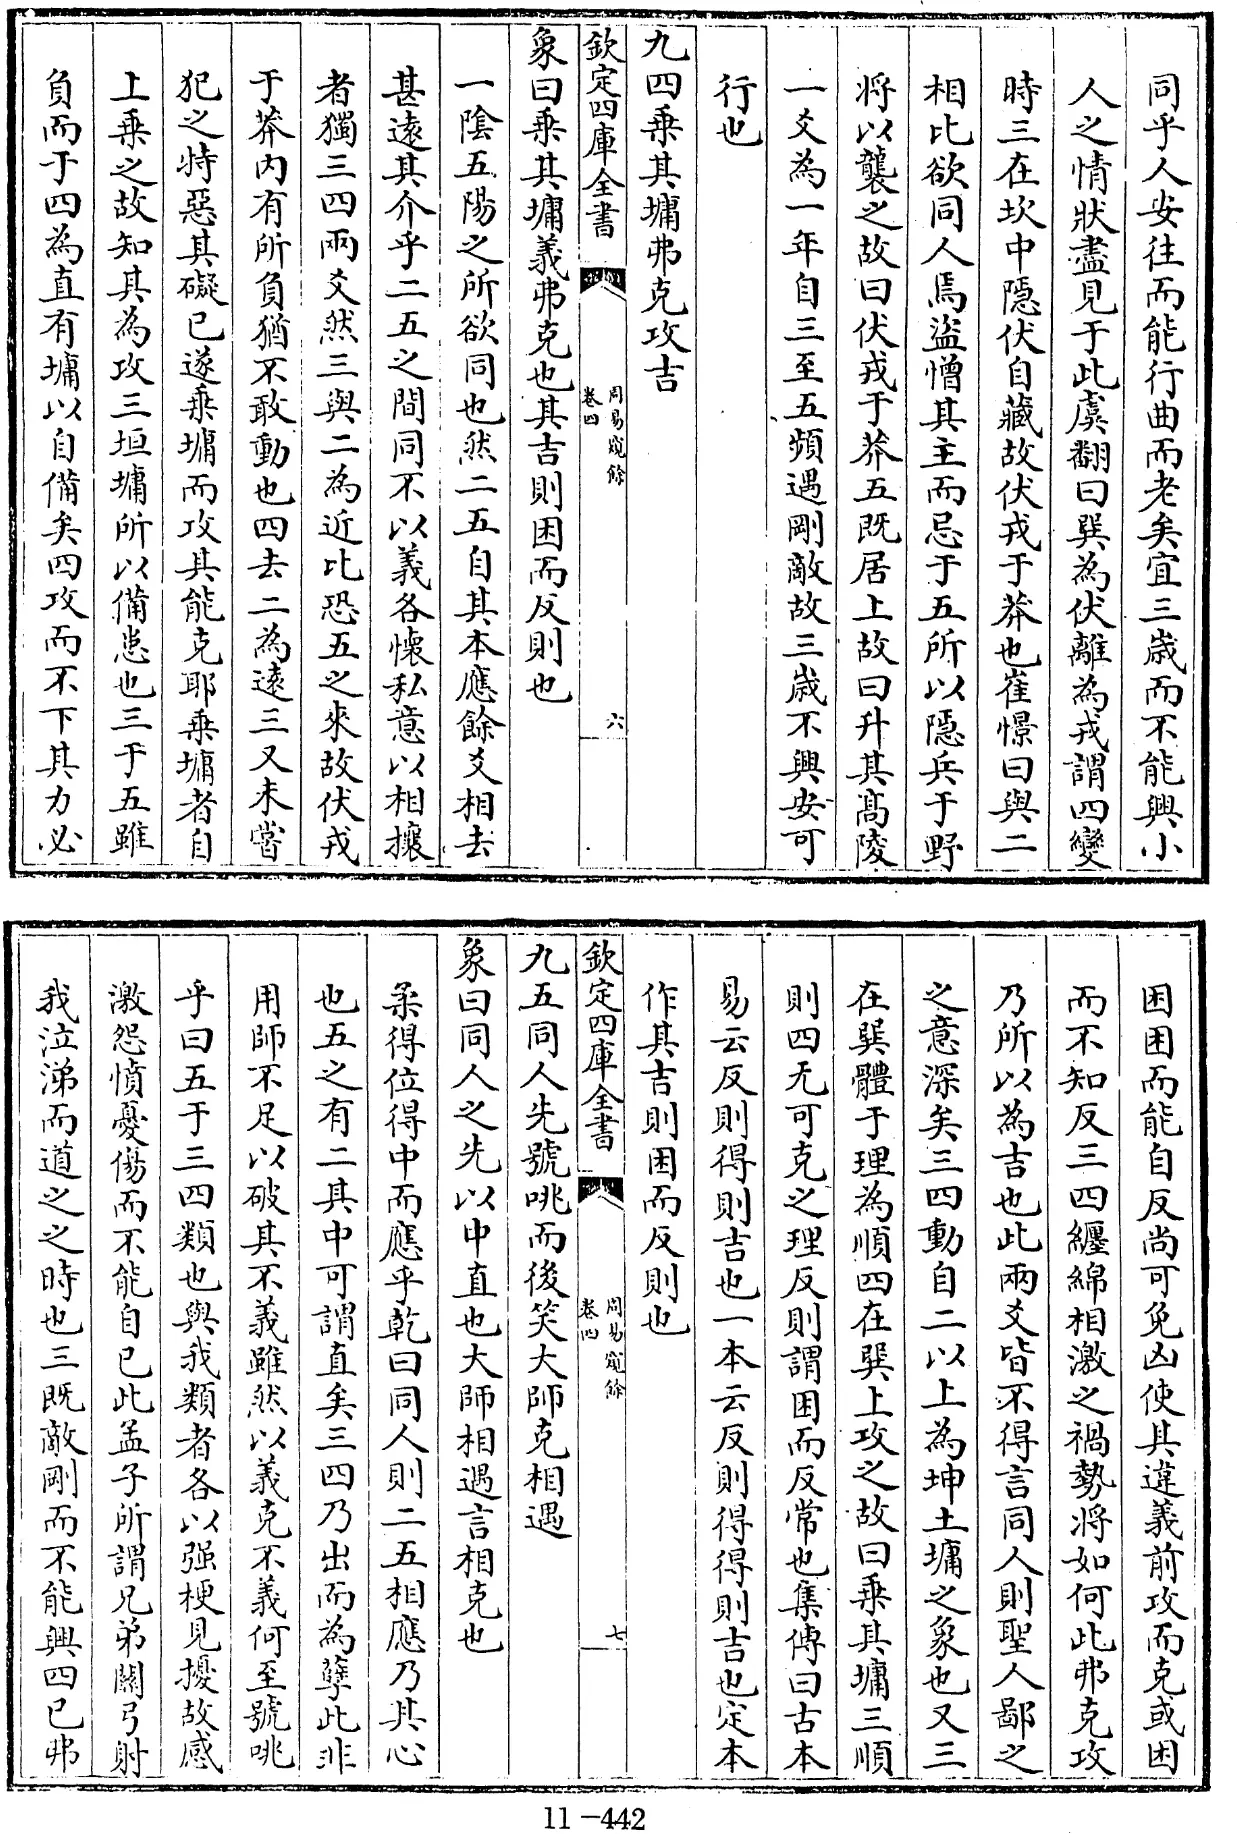 同乎人安往而能行曲而老矣宜三歳而不能興小
人之情狀盡見于此虞翻曰巽為伏離為戎謂四變
時三在坎中隱伏自藏故伏戎于莽也崔憬曰與二
相比欲同人焉盜憎其主而忌于五所以隱兵于野
將以襲之故曰伏戎于莽五既居上故曰升其髙陵
一爻為一年自三至五頻遇剛敵故三歳不興安可
行也
九四乗其墉弗克攻吉
欽定四庫全書
周易窺餘
卷四
六
象曰乗其墉義弗克也其吉則困而反則也
一陰五陽之所欲同也然二五自其本應餘爻相去
甚遠其介乎二五之間同不以義各懷私意以相攘
者獨三四兩爻然三與二為近比恐五之來故伏戎
于莽内有所負猶不敢動也四去二為遠三又未嘗
犯之特惡其礙已遂乗墉而攻其能克耶乗墉者自
上乗之故知其為攻三垣墉所以備患也三于五雖
負而于四為直有墉以自備矣四攻而不下其力必
困困而能自反尚可免凶使其違義前攻而克或困
而不知反三四纏綿相激之禍勢將如何此弗克攻
乃所以為吉也此兩爻皆不得言同人則聖人鄙之
之意深矣三四動自二以上為坤土墉之象也又三
在巽體于理為順四在巽上攻之故曰乗其墉三順
則四无可克之理反則謂困而反常也集傳曰古本
易云反則得則吉也一本云反則得得得則吉也定本
作其吉則困而反則也
欽定四庫全書
周易窺餘
卷四
七
九五同人先號咷而後笑大師克相遇
象曰同人之先以中直也大師相遇言相克也
柔得位得中而應乎乾曰同人則二五相應乃其心
也五之有二其中可謂直矣三四乃出而為孽此非
用師不足以破其不義雖然以義克不義何至號咷
乎曰五于三四類也與我類者各以强梗見擾故感
激怨憤憂傷而不能自已此孟子所謂兄弟關弓射
我泣涕而道之之時也三既敵剛而不能興四已弗
11-442